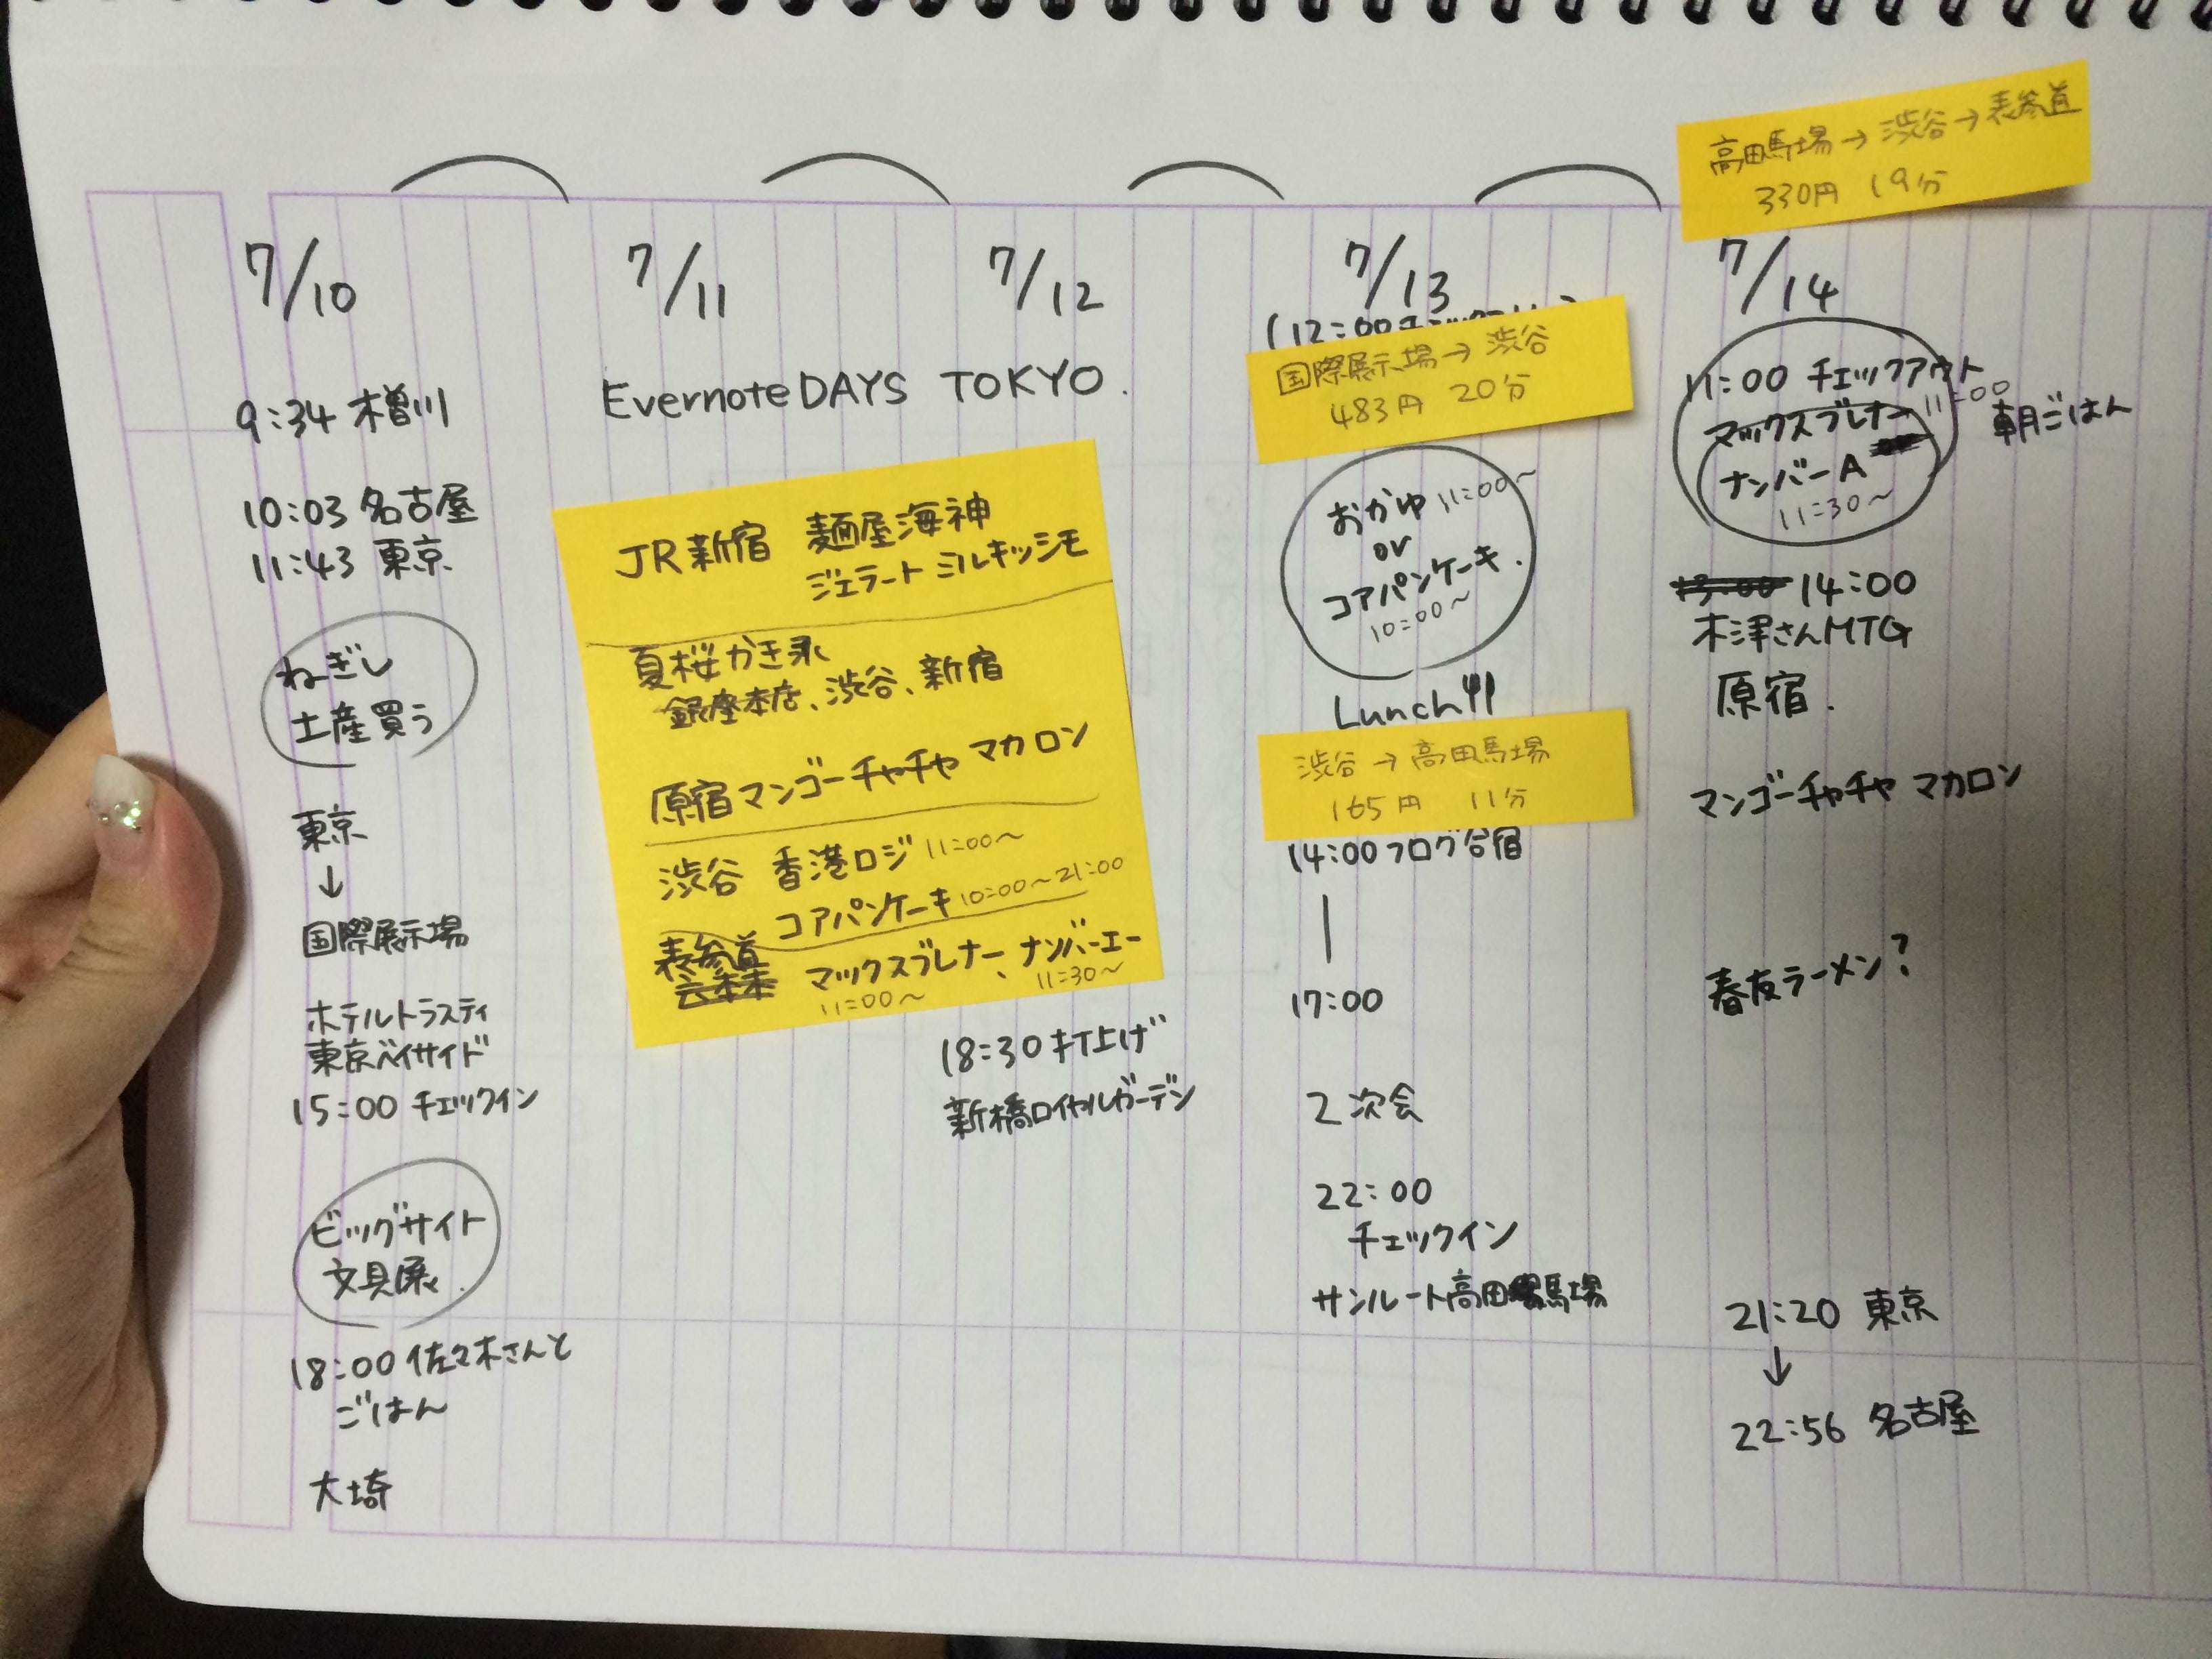 7/10
9:34 木曽川
10:03 名古屋
11:43 東京
ねぎし
土産買う
東京
↓
国際展示場
ホテルトラスティ
東京ベイサイド
15:00 チェックイン
ビッグサイト
文具展.
18:00 佐々木さんと
ごはん
大埼
7/11
7/12
EvernoteDAYS TOKYO.
JR新宿 麺屋海神
ジェラート ミルキッシモ
夏桜かき氷
銀座本店、渋谷、新宿
原宿マンゴーチャチャ マカロン
渋谷 香港ロジ 11:00〜
コアパンケーキ 10:00〜21:00
表参道
マックスブレナー、ナンバーエー
11:00〜 11:30〜
18:30 打上げ
新橋ロイヤルガーデン
7/13
(12:00
国際展示場→渋谷
483円 20分
おかゆ 11:00〜
or
コアパンケーキ.
10:00〜
Lunch
渋谷→高田馬場
165円 11分
14:00 ブログ合宿
17:00
2次会
22:00
チェックイン
サンルート高田馬場
高田馬場→渋谷→表参道
330円 19分
7/14
11:00 チェックアウト
マックスブレナー 11:00
朝ごはん
ナンバーA
11:30〜
13:00 14:00
木津さんMTG
原宿.
マンゴーチャチャ マカロン
春友ラーメン?
21:20 東京
↓
22:56 名古屋